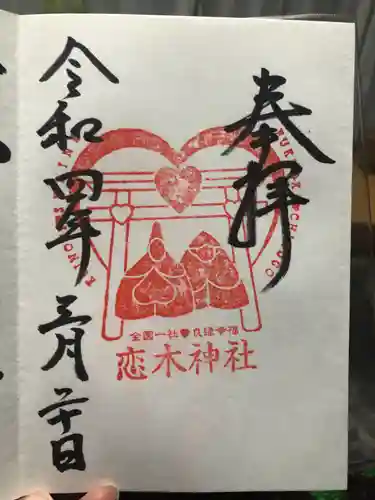 奉拝
全国一社♥良縁幸福
恋木神社
令和四年三月二十日